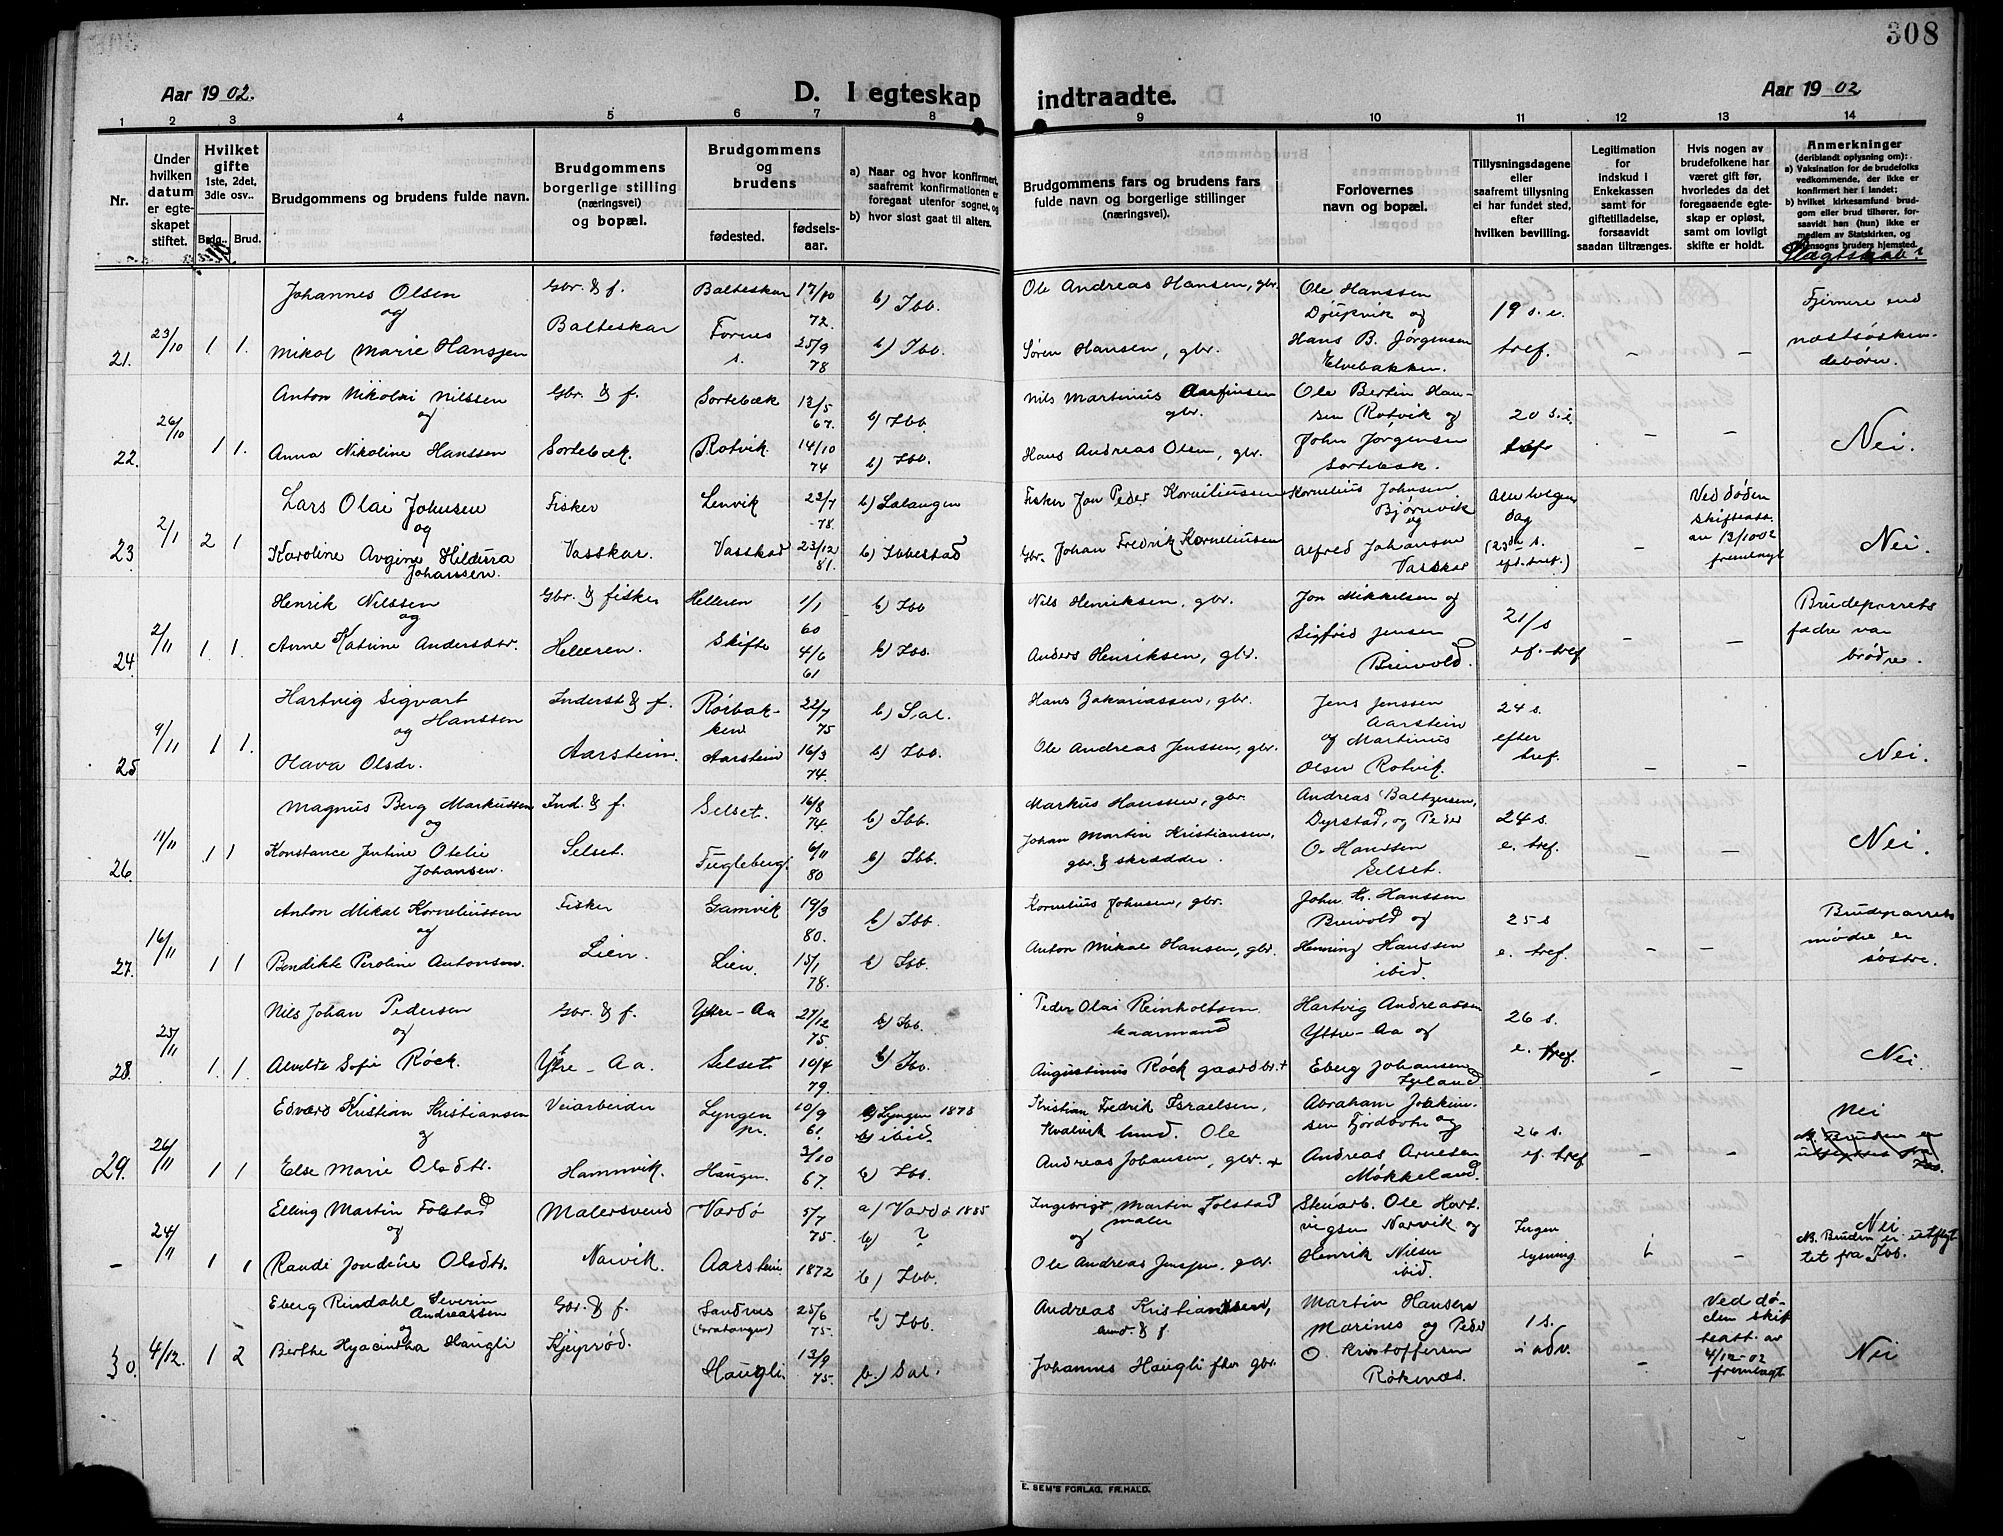 308
Aar 1902.
D. I egteskap indtraadte.
Aar 1902
1 2 3 4 5 6 7 8 9 10 11 12 13 14
Nr.
Under hvilken datum er egteskapet stiftet.
Hvilket gifte
1ste, 2det, 3die osv..
Brdg. Brud.
Brudgommens og brudens fulde navn.
Brudgommens borgerlige stilling (næringsvei) og bopæl.
Brudgommens og brudens
fødested.
fødsels-aar.
a) Naar og hvor konfirmert, saafremt konfirmationen er foregaat utenfor sognet, og
b) hvor sidst gaat til alters.
Brudgommens fars og brudens fars fulde navn og borgerlige stillinger (næringsvei).
Forlovernes navn og bopæl.
Tillysningsdagene eller saafremt tillysning ei har fundet sted, efter hvilken bevilling.
Legitimation for indskud i Enkekassen samt for giftetilladelse, forsaavidt saadan tiltrænges.
Hvis nogen av brudefolkene har været gift før, hvorledes da det foregaaende egteskap er opløst, samt om lovligt skifte er holdt.
Anmerkninger
(deriblandt oplysning om):
a) Vaksination for de brudefolks vedkommende, der ikke er konfirmert her i landet;
b) hvilket kirkesamfund brudgom eller brud tilhører, forsaavidt han (hun) ikke er medlem av Statskirken, og
Slægtskab?
21. 23/10 1 1. Johannes Olsen og Mikal Marie Hanssen
Gbr. & f. Balteskar
Balteskar 17/10 72. b) Ibb.
Fornes s. 25/9 78 b) Ibb.
Ole Andreas Hansen, gbr.
Søren Hansen, gbr.
Ole Hanssen Djupvik og Hans B. Jørgensen Elvebakken.
19 s. e. tref. – –
Fjernere end næstsøskendebørn.
22. 26/10 1 1. Anton Nikolai Nilssen og Anna Nikoline Hanssen
Gbr. & f. Sortebæk.
Sortebæk 12/5 67. b) Ibb
Rotvik. 14/10 74 b) Ibb.
Nils Martinus Aarfinsen gbr.
Hans Andreas Olsen, gbr.
Ole Bertin Hansen Rotvik og John Jørgensen Sortebæk.
20 s. e. tref – –
Nei.
23 2/1 2 1 Lars Olai Johnsen og Karoline Avgine Hildurra Johansen.
Fisker Vasskar.
Lenvik 23/7 -78. b) Salangen
Vasskad 23/12 81. b) Ibbestad
Fisker Jon Peder Korneliussen
Gbr. Johan Fredrik Korneliussen
Kornelius Johnsen Bjørnvik og Alfred Johansen Vasskar
Allehelgensdag (23de s. eft. tref.) –
Ved døden skifteatt. av 13/10 02 fremlagt
Nei.
24. 2/11 1 1. Henrik Nilssen og Anne Katrine Andersdtr.
Gbr. & fisker Helleren.
Helleren 1/1 60 b) Ibb
Skifte 4/6 61 b) Ibb.
Nils Henriksen, gbr.
Anders Henriksen, gbr.
Jon Mikkelsen og Sigfrid Jensen Breivold.
21/s ef. tref – –
Brudeparrets fædre var brødre.
25 9/11 1 1. Hartvig Sigvart Hanssen og Hava Olsdr.
Inderst & f. Aarstein.
Rørbakken 22/7 75 b) Sal.
Aarstein 16/3 74. b) Ibb.
Hans Zakariassen, gbr.
Ole Andreas Jenssen, gbr.
Jens Jenssen Aarstein og Martinus Olsen Rotvik.
24 s. efter tref. – –
Nei.
26. 11/11 1 1 Magnus Berg Markussen og Konstance Jentine Otelie Johansen.
Ind. & f. Selset.
Selset. 16/8 74. b) Ibb.
Fugleberg. 6/11 80 b) Ibb.
Markus Hanssen, gbr.
Johan Martin Kristiansen, gbr. & skrædder.
Andreas Baltzersen, Dyrstad, og Peder O. Hanssen Selset.
24 s. e. tref. – –
Nei.
27. 16/11 1 1 Anton Mikal Korneliussen og Bendikte Peroline Antonsen.
Fisker Lien.
Gamvik 19/3 80. b) Ibb.
Lien. 15/1 78. b) Ibb.
Kornelius Johnsen, gbr.
Anton Mikal Hansen, gbr.
John H. Hanssen Breivold og Henning Hanssen ibid.
25 s e. tref. – –
Brudeparrets mødre er søstre.
28. 25/11 1. 1. Nils Johan Pedersen og Alvilde Sofie Røck.
Gbr. & f. Ytre-Aa.
Ytre-Aa 27/12 75. b) Ibb.
Selset 10/4 79. b) Ibb.
Peder Olai Reinholtsen kaarmand
Augustinus Røck gaardbr. +
Hartvig Andreassen Ytre-Aa og Eberg Johansen Fyland
26 s. e. tref. – –
Nei.
29. 26/11 1 1 Edvard Kristian Kristiansen og Else Marie Olsdtr.
Veiarbeider Hamnvik.
Lyngen pr. 10/9 61. a) Lyngen 1878 b) ibid.
Haugen. 3/10 67. b) Ibb.
Kristian Fredrik Israelsen, Kvalvik
Ole Andreas Johansen, gbr. +
Abraham Joakimsen Fjordbotn og Andreas Arnesen Møkkeland.
26 s. ef. tref – –
Nei
– 24/11 1 1 Elling Martin Folstad og Randi Jondine Olsdtr.
Malersvend Narvik.
Vardø 5/7 75. a) Vardø 1885 b) ?
Aarstein 1872 b) Ibb.
Ingebrigt Martin Folstad maler og
Ole Andreas Jenssen, gbr.
Skuarb. Ole Hartvigsen Narvik og Henrik Nilsen ibid.
Ingen lysning –
Nei
NB. Bruden er utflyttet fra Ibb.
30. 4/12. 1 2 Eberg Rindahl Severin Andreassen og Berthe Hyacintha Haugli
Gbr. & f. Kjeiprød.
Sandnes (Gratangen) 25/6 75. b) Ibb.
Haugli 13/9 75. b.) Sal.
Andreas Kristiansen, ind. & f.
Johannes Haugli fhv gbr.
Martin Hansen Marines og Peder O. Kristoffersen Røkenes.
1 s. i adv. –
Ved døden skifteatt. av 4/12-02 fremlagt
Nei
E. SEM'S FORLAG, FR.HALD.